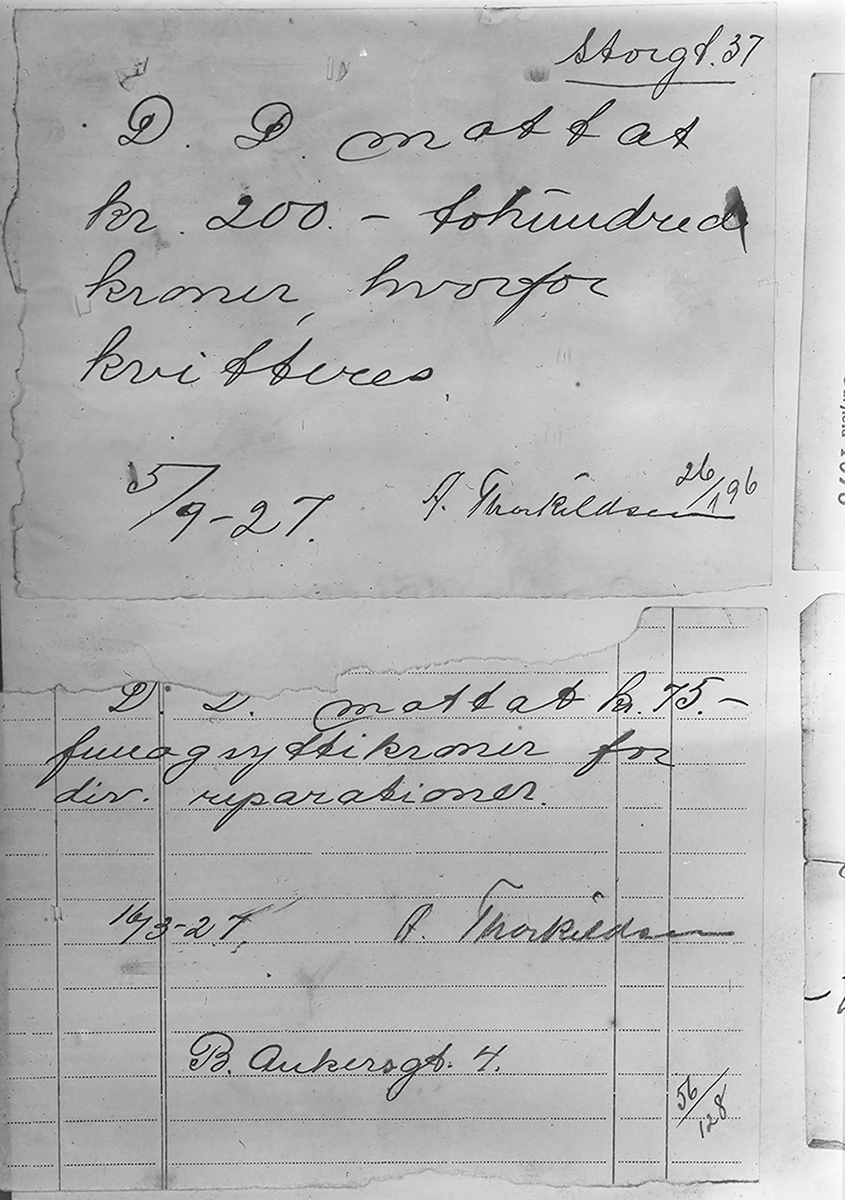 Storgt. 37
D. D. mottat
kr. 200. - tohundred
kroner, hvorfor
kvitteres.
5/9-27. A. Thorkildsen 26/196
D. D. mottat kr. 75.-
femogsyttikroner for
div. reparationer.
16/3-27. A. Thorkildsen
B. Ankersgt. 4.
56/128